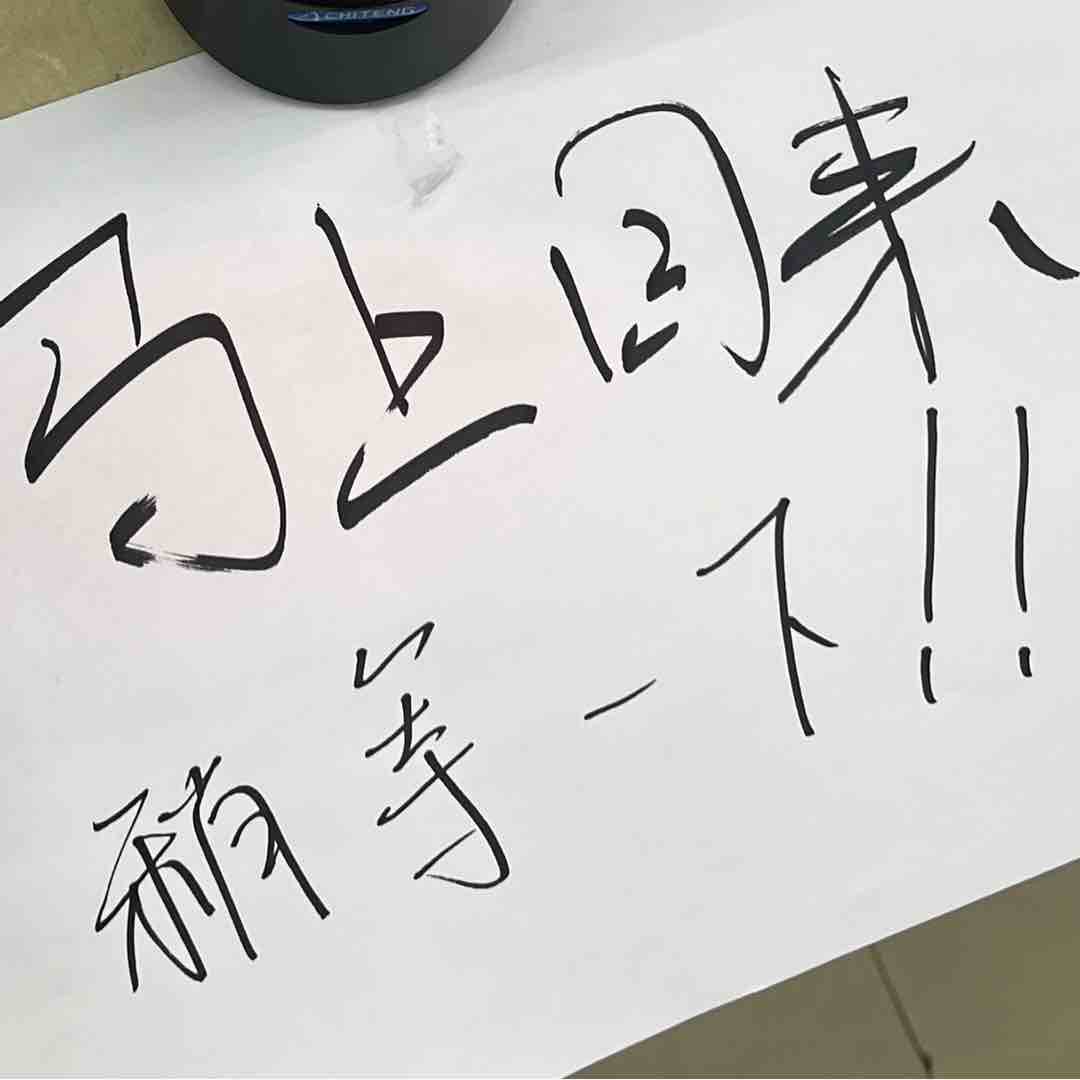 CHITENG
马上回来、
稍等一下!!